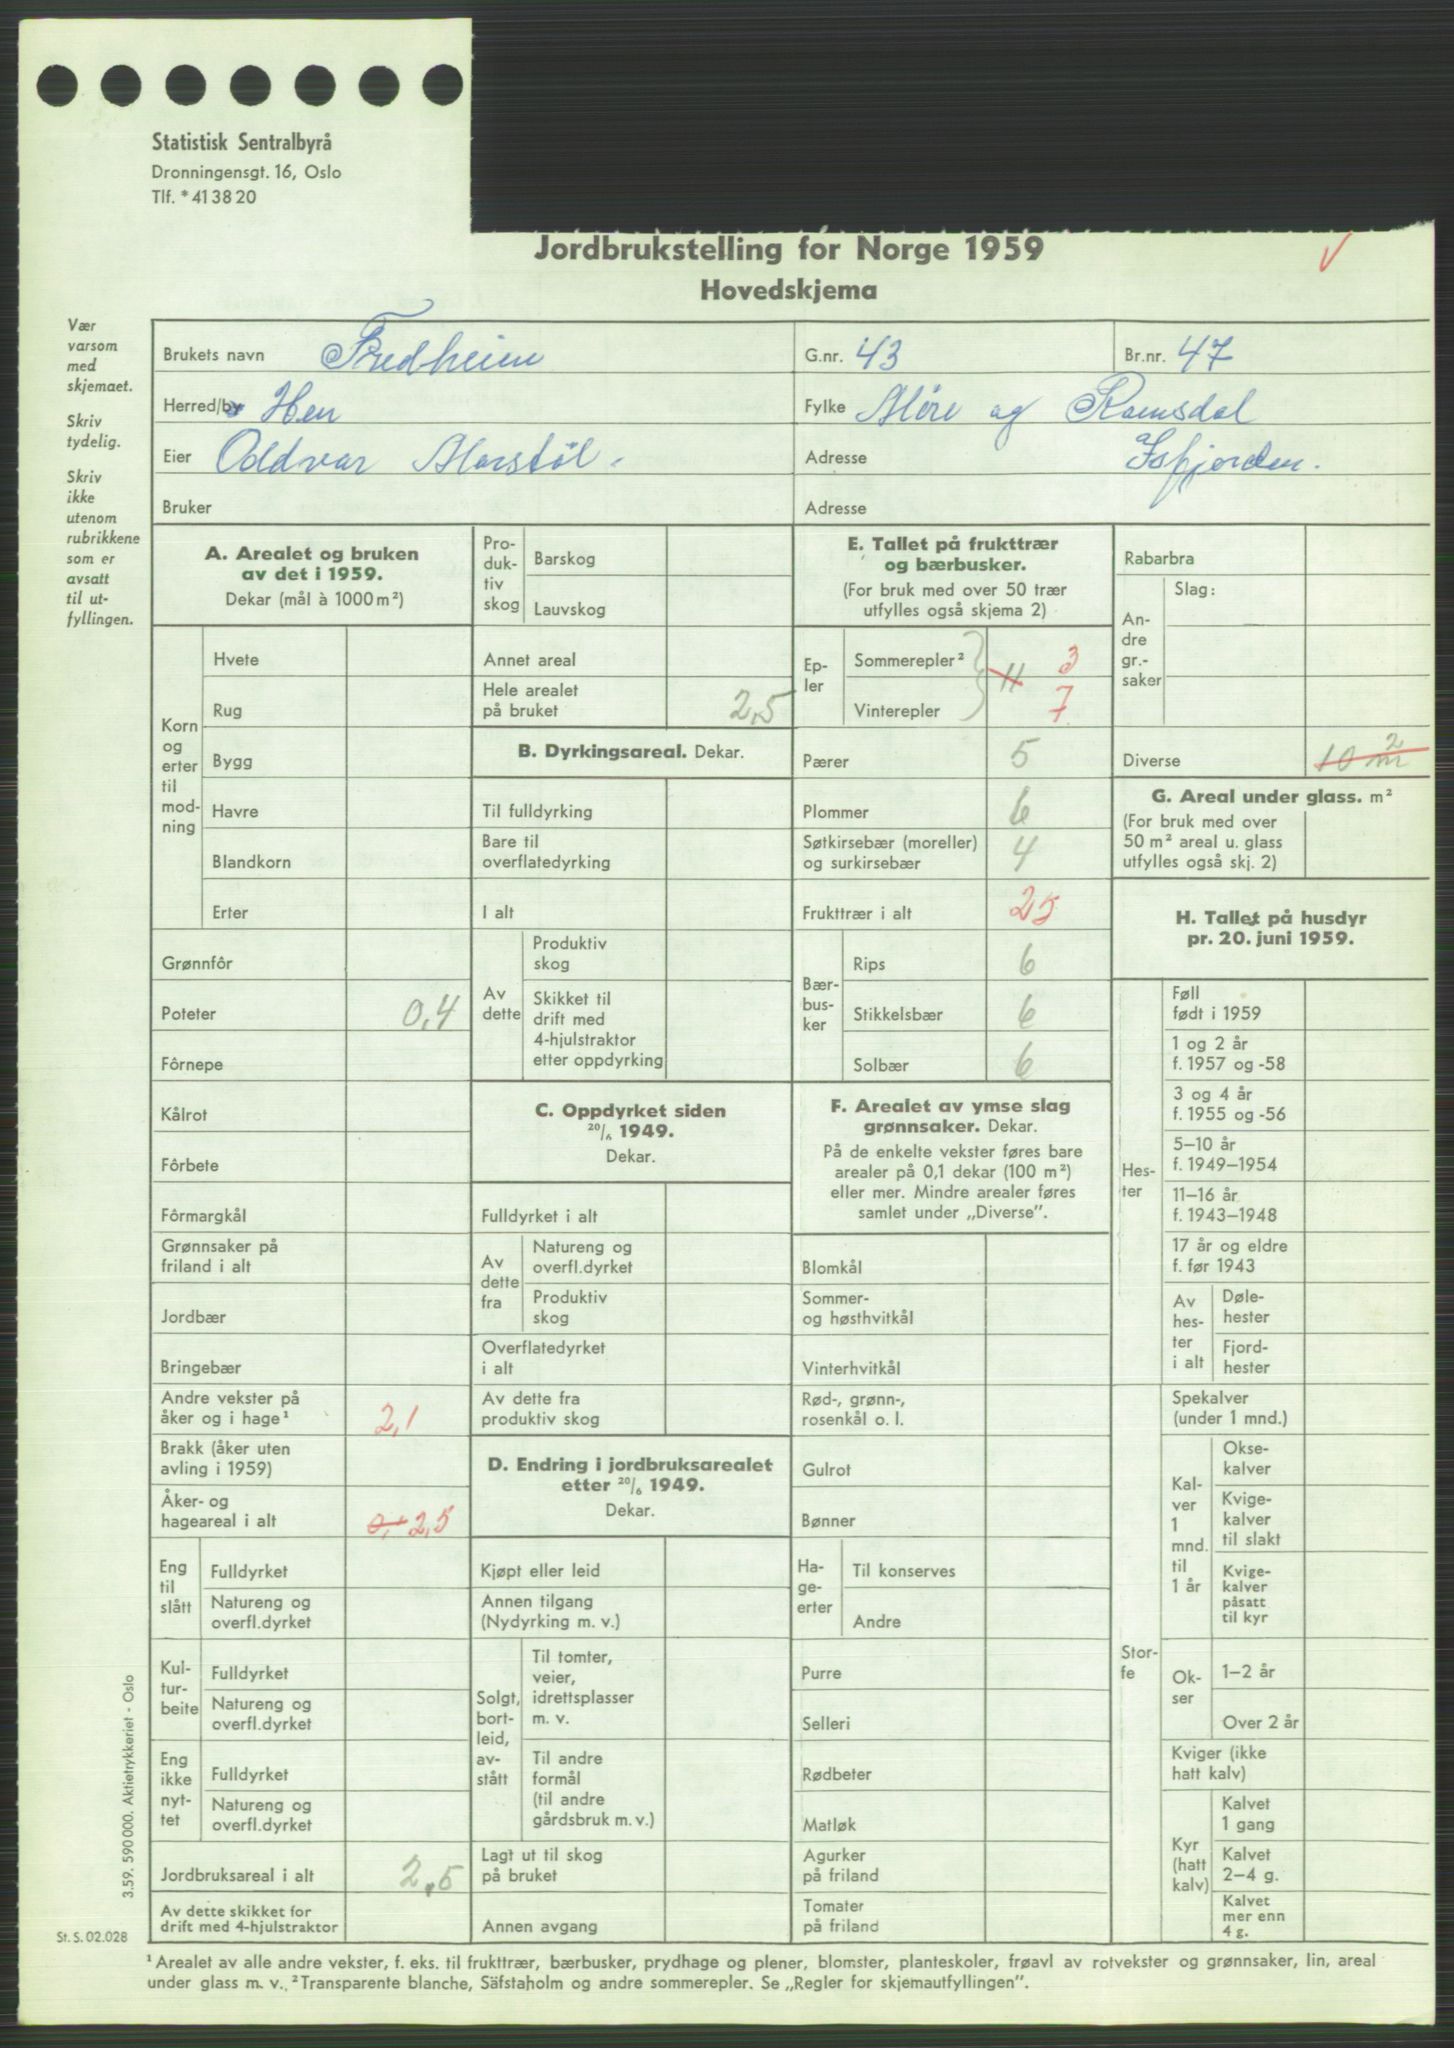 Statistisk Sentralbyrå
Dronningensgt. 16, Oslo
Tlf. * 41 38 20
Jordbrukstelling for Norge 1959
Hovedskjema
Vær
varsom
med
skjemaet.
Skriv
tydelig.
Skriv
ikke
utenom
rubrikkene
som er
avsatt
til ut-
fyllingen.
Brukets navn Fredheim G.nr. 43 Br.nr. 47
Herred/by Hen Fylke Møre og Romsdal
Eier Oddvar Marstøl. Adresse Isfjorden.
Bruker Adresse
A. Arealet og bruken
av det i 1959.
Dekar (mål à 1000 m²)
Korn
og
erter
til
mod-
ning
Hvete
Rug
Bygg
Havre
Blandkorn
Erter
Grønnfôr
Poteter 0,4
Fôrnepe
Kålrot
Fôrbete
Fôrmargkål
Grønnsaker på
friland i alt
Jordbær
Bringebær
Andre vekster på
åker og i hage¹ 2,1
Brakk (åker uten
avling i 1959)
Åker- og
hageareal i alt 2,5
Eng
til
slått
Fulldyrket
Natureng og
overfl.dyrket
Kul-
tur-
beite
Fulldyrket
Natureng og
overfl.dyrket
Eng
ikke
nyt-
tet
Fulldyrket
Natureng og
overfl.dyrket
Jordbruksareal i alt 2,5
Av dette skikket for
drift med 4-hjulstraktor
Pro-
duk-
tiv
skog
Barskog
Lauvskog
Annet areal
Hele arealet
på bruket 2,5
B. Dyrkingsareal. Dekar.
Til fulldyrking
Bare til
overflatedyrking
I alt
Av
dette
Produktiv
skog
Skikket til
drift med
4-hjulstraktor
etter oppdyrking
C. Oppdyrket siden
20/6 1949.
Dekar.
Fulldyrket i alt
Av
dette
fra
Natureng og
overfl.dyrket
Produktiv
skog
Overflatedyrket
i alt
Av dette fra
produktiv skog
D. Endring i jordbruksarealet
etter 20/6 1949.
Dekar.
Kjøpt eller leid
Annen tilgang
(Nydyrking m. v.)
Solgt,
bort-
leid,
av-
stått
Til tomter,
veier,
idrettsplasser
m. v.
Til andre
formål
(til andre
gårdsbruk m. v.)
Lagt ut til skog
på bruket
Annen avgang
E. Tallet på frukttrær
og bærbusker.
(For bruk med over 50 trær
utfylles også skjema 2)
Ep-
ler
Sommerepler² 11 3
Vinterepler 7
Pærer 5
Plommer 6
Søtkirsebær (moreller)
og surkirsebær 4
Frukttrær i alt 25
Bær-
bus-
ker
Rips 6
Stikkelsbær 6
Solbær 6
F. Arealet av ymse slag
grønnsaker. Dekar.
På de enkelte vekster føres bare
arealer på 0,1 dekar (100 m²)
eller mer. Mindre arealer føres
samlet under „Diverse".
Blomkål
Sommer-
og høsthvitkål
Vinterhvitkål
Rød-, grønn-,
rosenkål o. l.
Gulrot
Bønner
Ha-
ge-
erter
Til konserves
Andre
Purre
Selleri
Rødbeter
Matløk
Agurker
på friland
Tomater
på friland
Rabarbra
An-
dre
gr.-
saker
Slag:
Diverse 10 m²
G. Areal under glass. m²
(For bruk med over
50 m² areal u. glass
utfylles også skj. 2)
H. Tallet på husdyr
pr. 20. juni 1959.
Hes-
ter
Føll
født i 1959
1 og 2 år
f. 1957 og -58
3 og 4 år
f. 1955 og -56
5–10 år
f. 1949–1954
11–16 år
f. 1943–1948
17 år og eldre
f. før 1943
Av
hes-
ter
i alt
Døle-
hester
Fjord-
hester
Stor-
fe
Spekalver
(under 1 mnd.)
Kal-
ver
1
mnd.
til
1 år
Okse-
kalver
Kvige-
kalver
til slakt
Kvige-
kalver
påsatt
til kyr
Ok-
ser
1–2 år
Over 2 år
Kviger (ikke
hatt kalv)
Kyr
(hatt
kalv)
Kalvet
1 gang
Kalvet
2–4 g.
Kalvet
mer enn
4 g.
3.59. 590 000. Aktietrykkeriet - Oslo
St. S. 02.028
¹ Arealet av alle andre vekster, f. eks. til frukttrær, bærbusker, prydhage og plener, blomster, planteskoler, frøavl av rotvekster og grønnsaker, lin, areal
under glass m. v. ² Transparente blanche, Säfstaholm og andre sommerepler. Se „Regler for skjemautfyllingen".